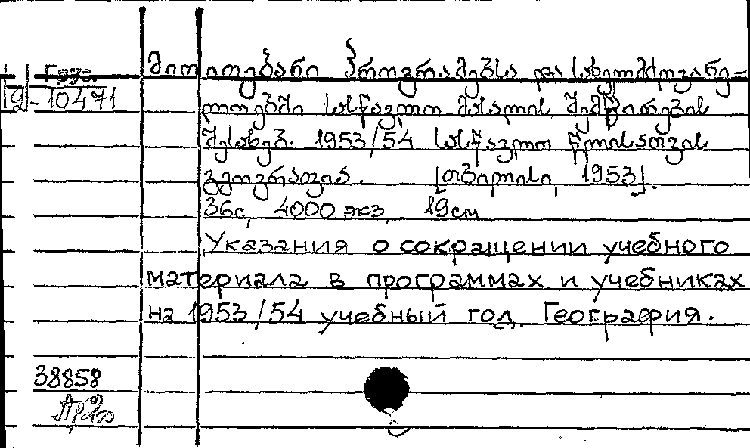 Груз. მითითებანი პროგრამებსა და სახელმძღვანე-
19-10471 ლოებში სასწავლო მასალის შემცირების
შესახებ. 1953/54 სასწავლო წლისათვის
გეოგრაფია. [თბილისი, 1953].
36с, 4000 экз, 19см
Указания о сокращении учебного
материала в программах и учебниках
на 1953/54 учебный год. География.
38858